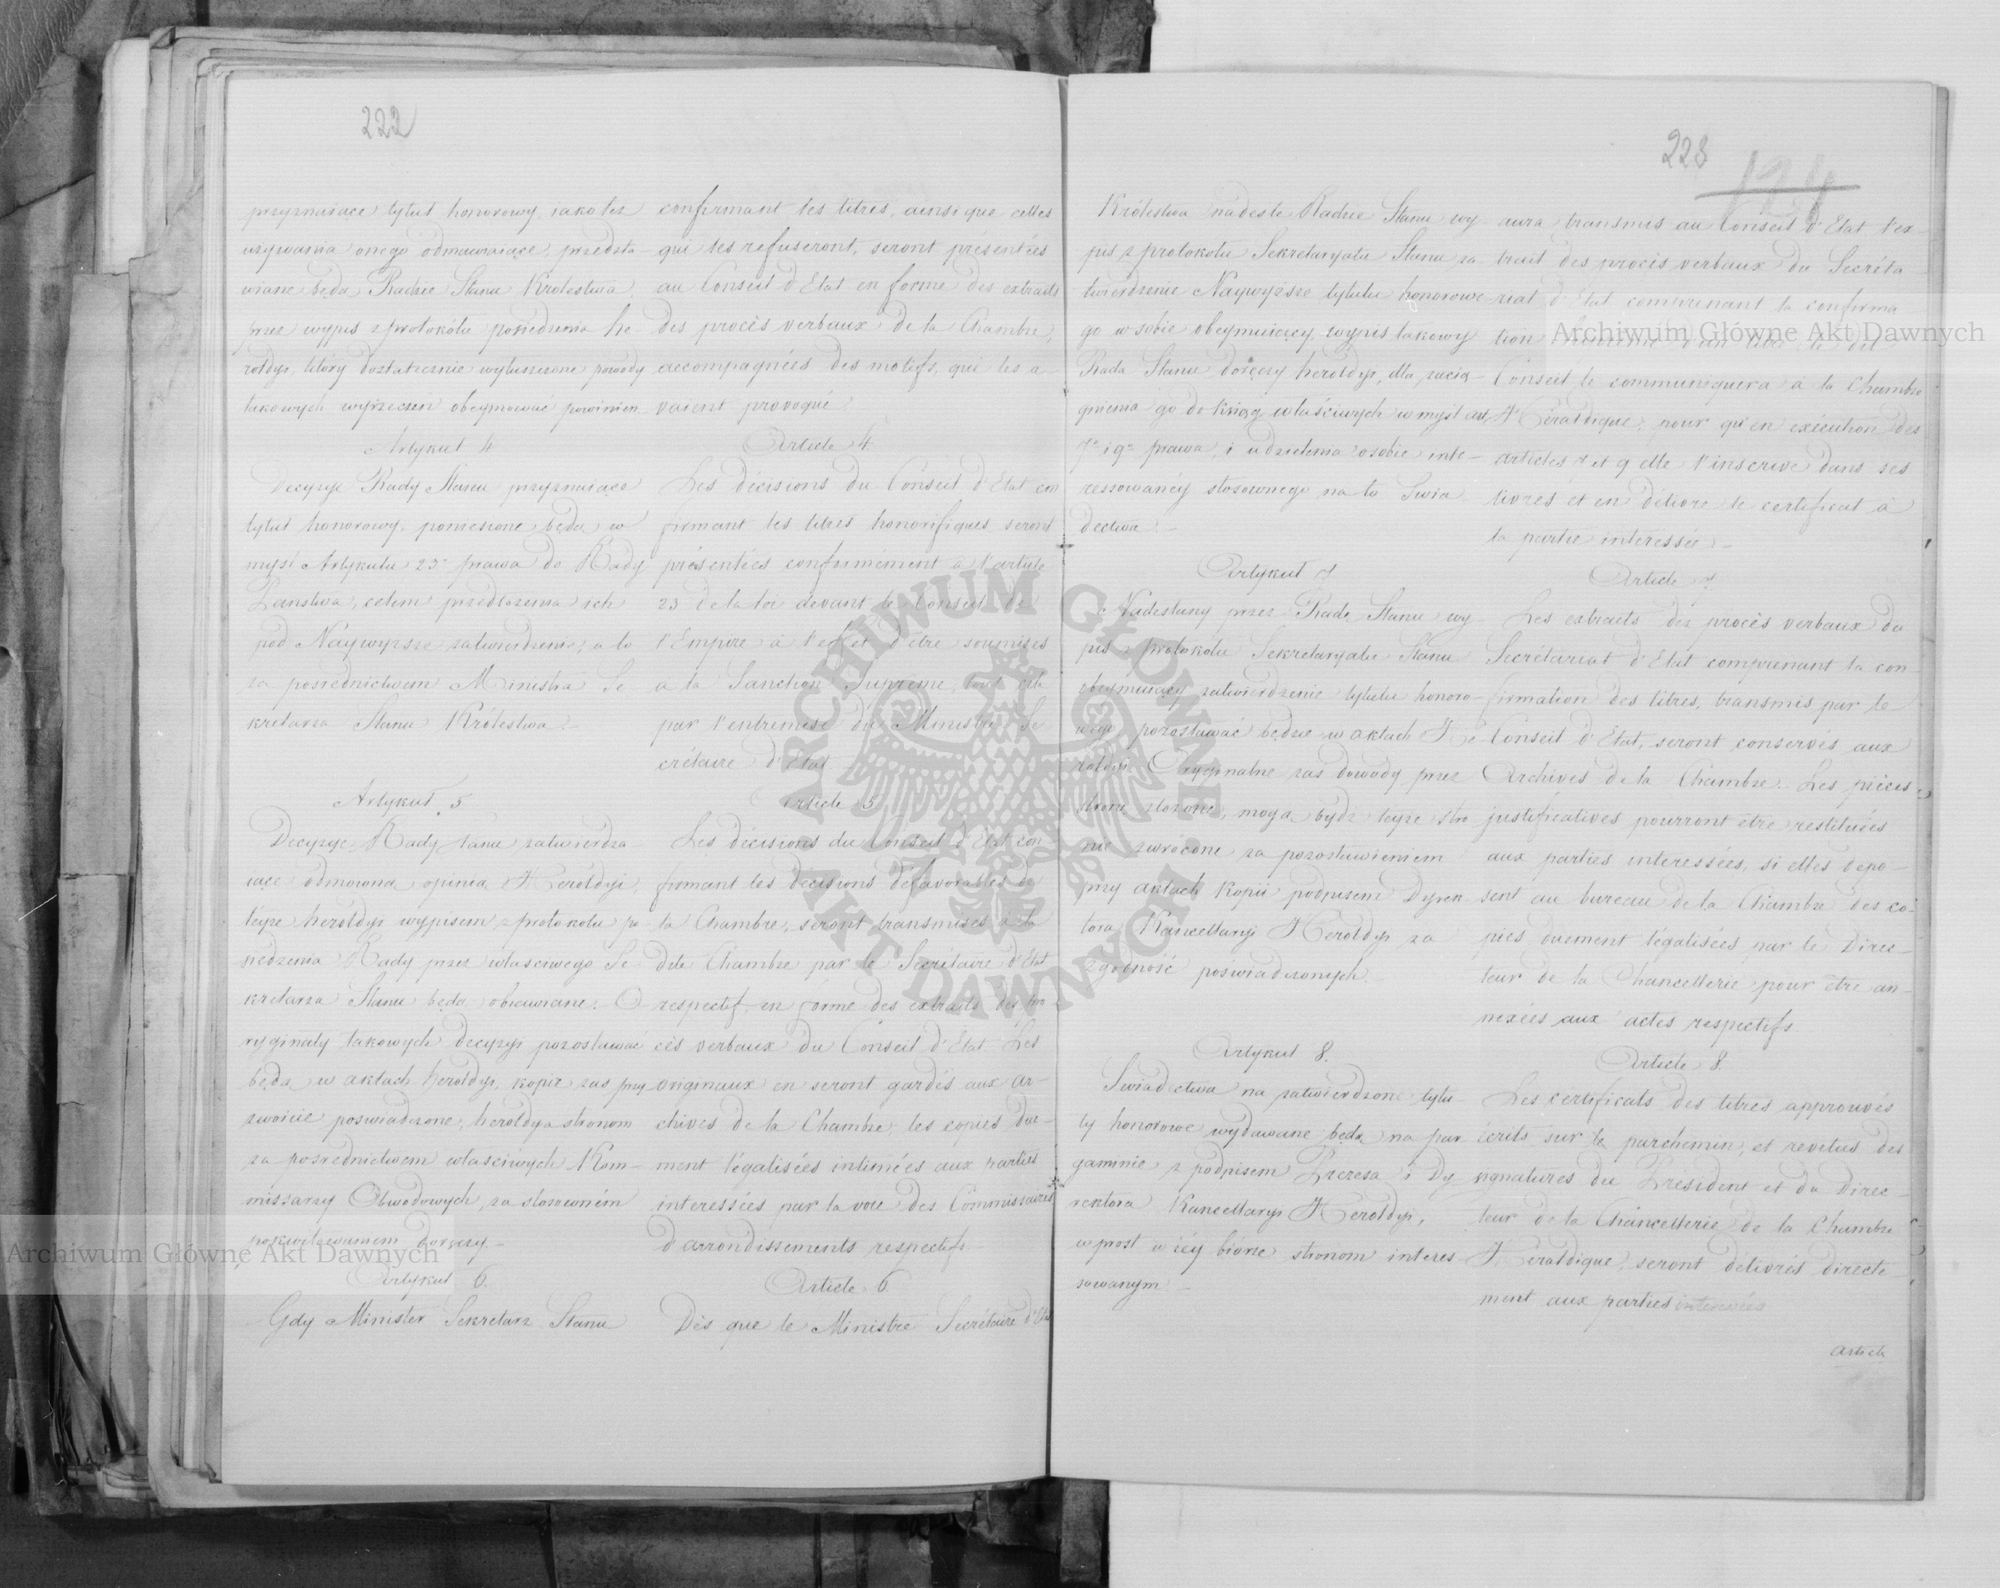 222
przyznaiące tytuł honorowy, iako też
używania onego odmawiaiące, przedsta-
wiane będą Radzie Stanu Królestwa,
przez wypis z protokółu posiedzenia he
roldyi, który dostatecznie wyłuszczone powody
takowych wyrzeczeń obeymować powinien
Artykuł 4
Decyzye Rady Stanu przyznaiące
tytuł honorowy, poniesione będą w
myśl Artykułu 23º prawa do Rady
Państwa, celem przedłożenia ich
pod Naywyższe zatwierdzenie; a to
za pośrednictwem Ministra Se
kretarza Stanu Królestwa.
Artykuł 5
Decyzye Rady Stanu zatwierdza
iące odmowną opinię Heroldyi,
teyże heroldyi wypisem z protokołu po
siedzenia Rady przez właściwego Se
kretarza Stanu będą obiawiane. O
ryginały takowych decyzyi pozostawać
będą w aktach heroldyi, kopie zaś przy
zwoicie poświadczone, heroldya stronom
za pośrednictwem właściwych Kom-
missarzy Obwodowych, za stosowném
pokwitowaniem doręczy.-
Artykuł 6.
Gdy Minister Sekretarz Stanu
confirmant les titres, ainsi que celles
qui les refuseront, seront présentées
au Conseil d'Etat en forme des extraits
des procès verbaux de la Chambre,
accompagnées des motifs, qui les a-
vaient provoqué.
Article 4.
Les décisions du Conseil d'Etat con
firmant les titres honorifiques seront
présentées conformément à l'article
23 de la loi devant le Conseil de
l'Empire à l'effet d'être soumises
a la Sanction Suprême, tout cela
par l'entremise du Ministre Se
crétaire d'Etat.
Article 5
Les décisions du Conseil d'Etat con-
firmant les décisions défavorables de
la Chambre, seront transmises à la
dite Chambre par le Secrétaire d'Etat
respectif, en forme des extraits des pro
cès verbaux du Conseil d'Etat. Les
originaux en seront gardés aux ar-
chives de la Chambre; les copies due-
ment légalisées intimées aux parties
interessées par la voie des Commissaires
d'arrondissements respectifs
Article 6.
Dès que le Ministre Secrétaire d'Etat
223
Królestwa nadeśle Radzie Stanu wy
pis z protokołu Sekretaryatu Stanu za
twierdzenie Naywyższe tytułu honorowe
go w sobie obeymuiący, wypis takowy
Rada Stanu doręczy heroldyi, dla zacią-
gnienia go do ksiąg właściwych w myśl art
7º i 9º prawa, i udzielenia osobie inte-
ressowanéy stosownego na to Swia
dectwa.-
Artykuł 7
Nadesłany przez Radę Stanu wy
pis z protokołu Sekretaryatu Stanu
obeymuiący zatwierdzenie tytułu honoro-
wego pozostawać będzie w aktach He
roldyi. Oryginalne zaś dowody przez
stronę złożone, mogą bydź teyże stro
nie zwrócone za pozostawieniem
przy aktach kopii podpisem Dyrek
tora Kancellaryi Heroldyi za
zgodność poświadczonych.-
Artykuł 8.
Swiadectwa na zatwierdzone tytu-
ły honorowe wydawane będą na par
gaminie z podpisem Prezesa i Dy
rektora Kancellaryi Heroldyi,
wprost w iéy biórze stronom interes-
sowanym.-
aura transmis au Conseil d'Etat l'ex-
trait des procès verbaux du Secréta-
riat d'Etat comprenant la confirma
tion Suprême d'un titre, le dit
Conseil le communiquera à la Chambre
Héraldique, pour qu'en exécution des
articles 7 et 9 elle l'inscrive dans ses
livres et en délivre le certificat à
la partie interessée.-
Article 7
Les extraits des procès verbaux du
Secrétariat d'Etat comprenant la con-
firmation des titres, transmis par le
Conseil d'Etat, seront conservés aux
Archives de la Chambre. Les pièces
justificatives pourront être restituées
aux parties interessées, si elles dépo-
sent au bureau de la Chambre des co-
pies duement légalisées par le Direc-
teur de la Chancellerie pour être an-
nexées aux actes respectifs
Article 8.
Les certificats des titres approuvés
écrits sur le parchemin, et revêtus des
signatures du Président et du Direc-
teur de la Chancellerie de la Chambre
Héraldique, seront délivrés directe-
ment aux parties interessées
Article
Archiwum Główne Akt Dawnych
Archiwum Główne Akt Dawnych
ARCHIWUM GŁÓWNE
AKT DAWNYCH